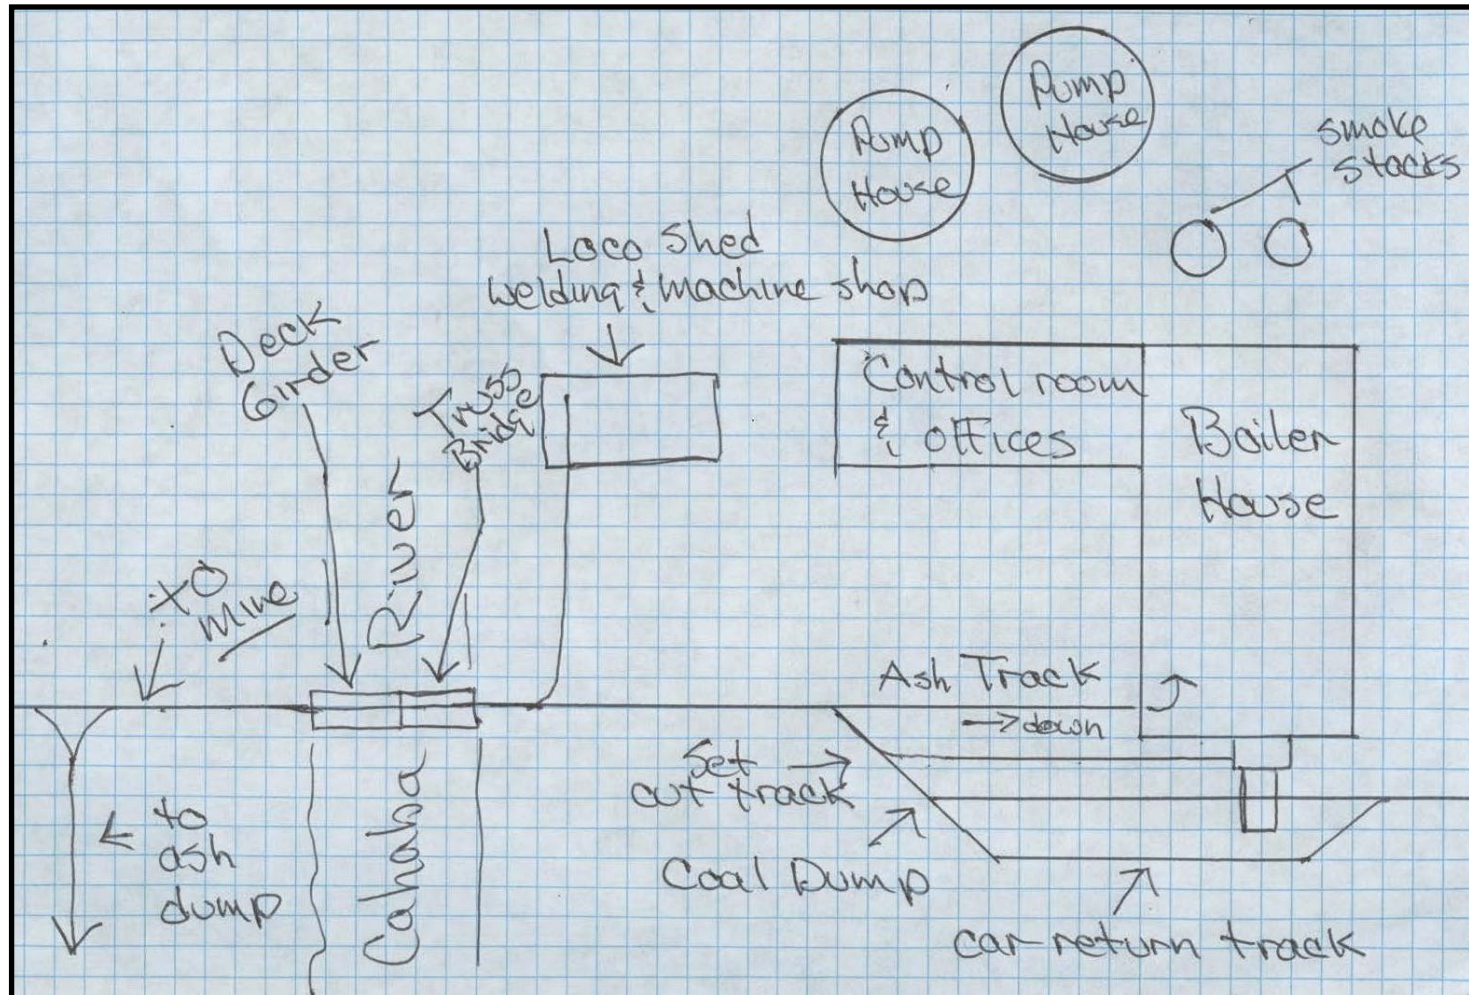 Pump
House
Pump
House
smoke
stacks
Loco Shed
welding & machine shop
Deck
Girder
Truss
Bridge
Control room
& offices
Boiler
House
River
to
mine
Ash Track
→ down
Set
out track
to
ash
dump
Cahaba
Coal Dump
car return track